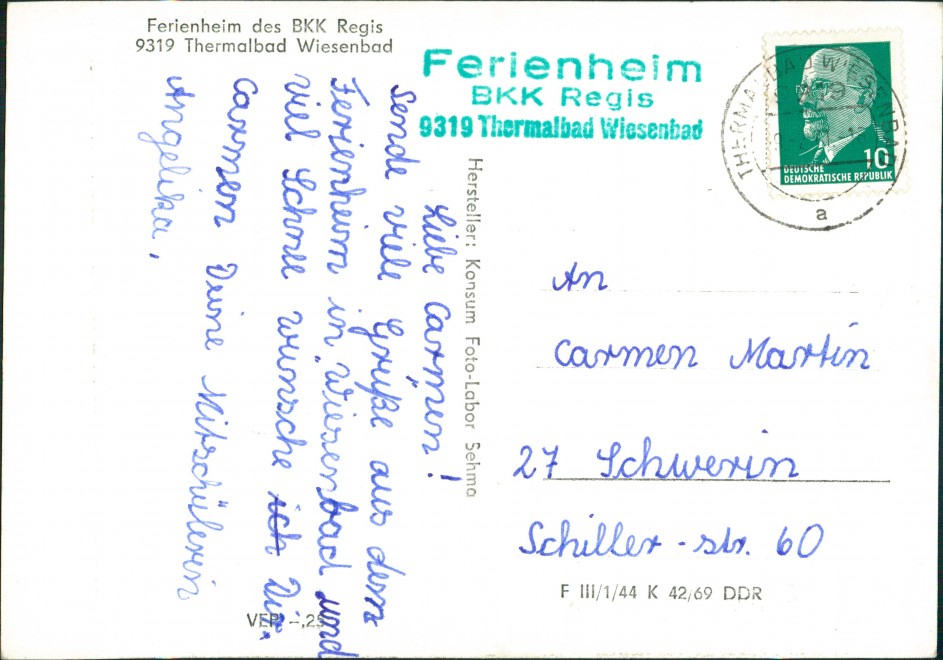 Ferienheim des BKK Regis
9319 Thermalbad Wiesenbad
Ferienheim
BKK Regis
9319 Thermalbad Wiesenbad
THERMALBAD WIESENBAD
a
10
DEUTSCHE
DEMOKRATISCHE REPUBLIK
Liebe Carmen!
Sende viele Grüße aus dem
Ferienheim in Wiesenbad und
viel Schnee wünsche ich Dir.
Carmen Deine Mitschülerin
Angelika.
Hersteller: Konsum Foto-Labor Sehma
An
Carmen Martin
27 Schwerin
Schiller-str. 60
F III/1/44 K 42/69 DDR
VEP -,25